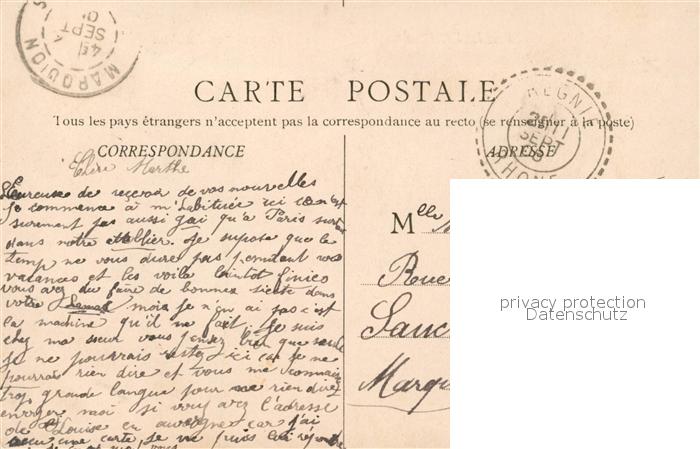 MARQUION
SEPT
CARTE POSTALE
Tous les pays étrangers n'acceptent pas la correspondance au recto (se renseigner à la poste)
CORRESPONDANCE
ADRESSE
REGNIE
SEPT
RHONE
Chère Marthe
Heureuse de recevoir de vos nouvelles
Je commence à m'habituée ici
surement pas aussi gai qu'a Paris surtout
dans notre attellier. Je supose que le
temp ne vous dure pas pendant vos
vacances et les voila bientot finies
vous avez du faire de bonnes sieste dans
votre mois je n'en ai pas c'est
la machine qu'il me fait. Je suis
chez ma soeur vous pensez bien que seule
je ne pourrais restez ici car je ne
pourrais rien dire et vous me connaissez
trop grande langue pour ne rien dire
envoyer moi si vous avez l'adresse
de Louise en auvergne car j'ai
une carte, je ne puis lui répondre
Mlle
Rue
Sauc
Marqu
privacy protection
Datenschutz